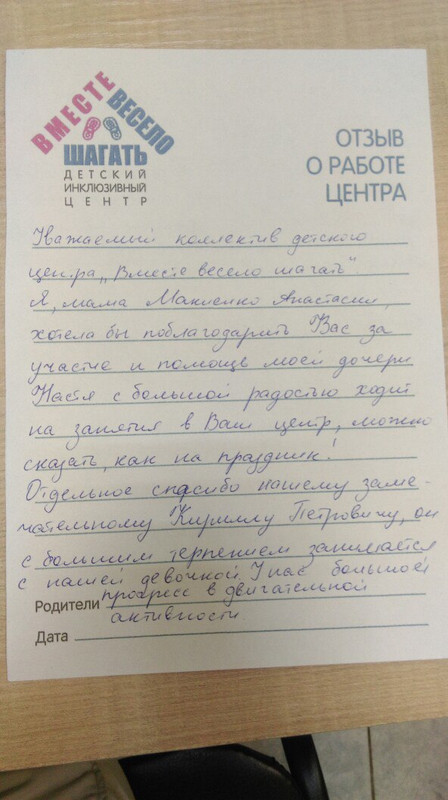 ВМЕСТЕ
ВЕСЕЛО
ШАГАТЬ
ДЕТСКИЙ
ИНКЛЮЗИВНЫЙ
ЦЕНТР
ОТЗЫВ
О РАБОТЕ
ЦЕНТРА
Уважаемый коллектив детского
центра „Вместе весело шагать"
Я, мама Макиенко Анастасии,
хотела бы поблагодарить Вас за
участие и помощь моей дочери
Настя с большой радостью ходит
на занятия в Ваш центр, можно
сказать, как на праздник!
Отдельное спасибо нашему заме-
чательному Кириллу Петровичу, он
с большим терпением занимается
с нашей девочкой У нас большой
Родители прогресс в двигательной
активности.
Дата